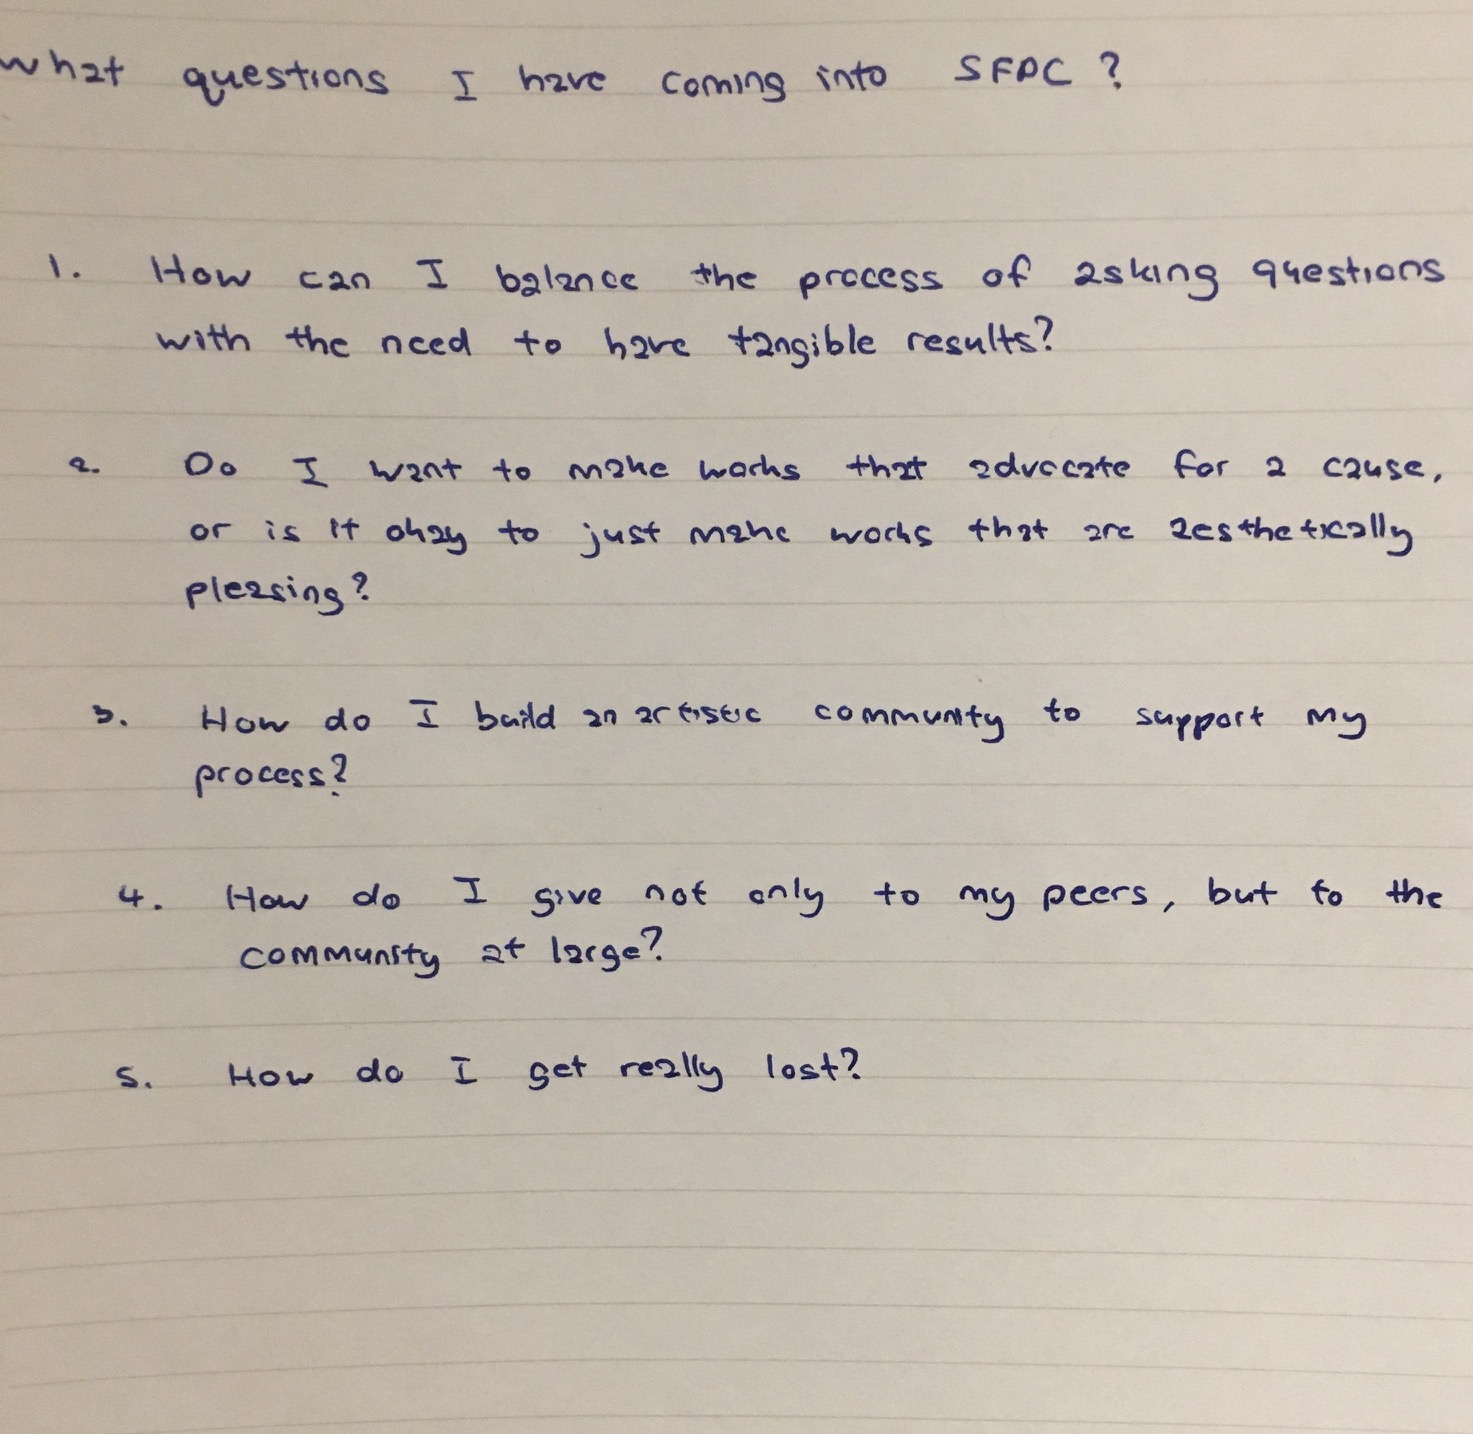 What questions I have coming into SFPC?
1. How can I balance the process of asking questions
with the need to have tangible results?
2. Do I want to make works that advocate for a cause,
or is it okay to just make works that are aesthetically
pleasing?
3. How do I build an artistic community to support my
process?
4. How do I give not only to my peers, but to the
community at large?
5. How do I get really lost?